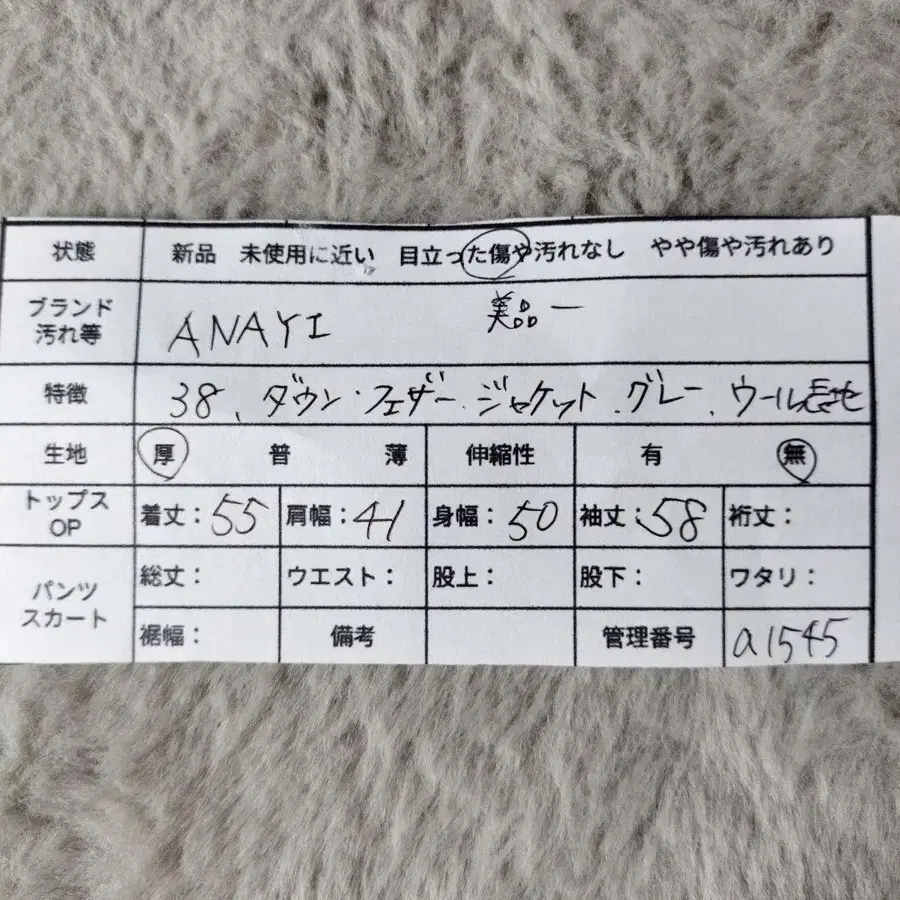 状態 新品 未使用に近い 目立った傷や汚れなし やや傷や汚れあり
ブランド
汚れ等 ANAYI 美品一
特徴 38、ダウン・フェザー・ジャケット、グレー、ウール表地
生地 厚 普 薄 伸縮性 有 無
トップス
OP 着丈:55 肩幅:41 身幅:50 袖丈:58 裄丈:
パンツ
スカート 総丈: ウエスト: 股上: 股下: ワタリ:
裾幅: 備考 管理番号 a1545